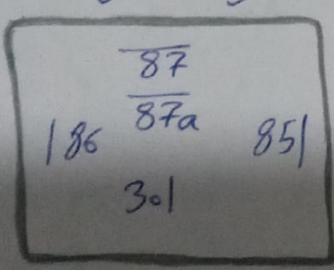 87
87a
186 851
301